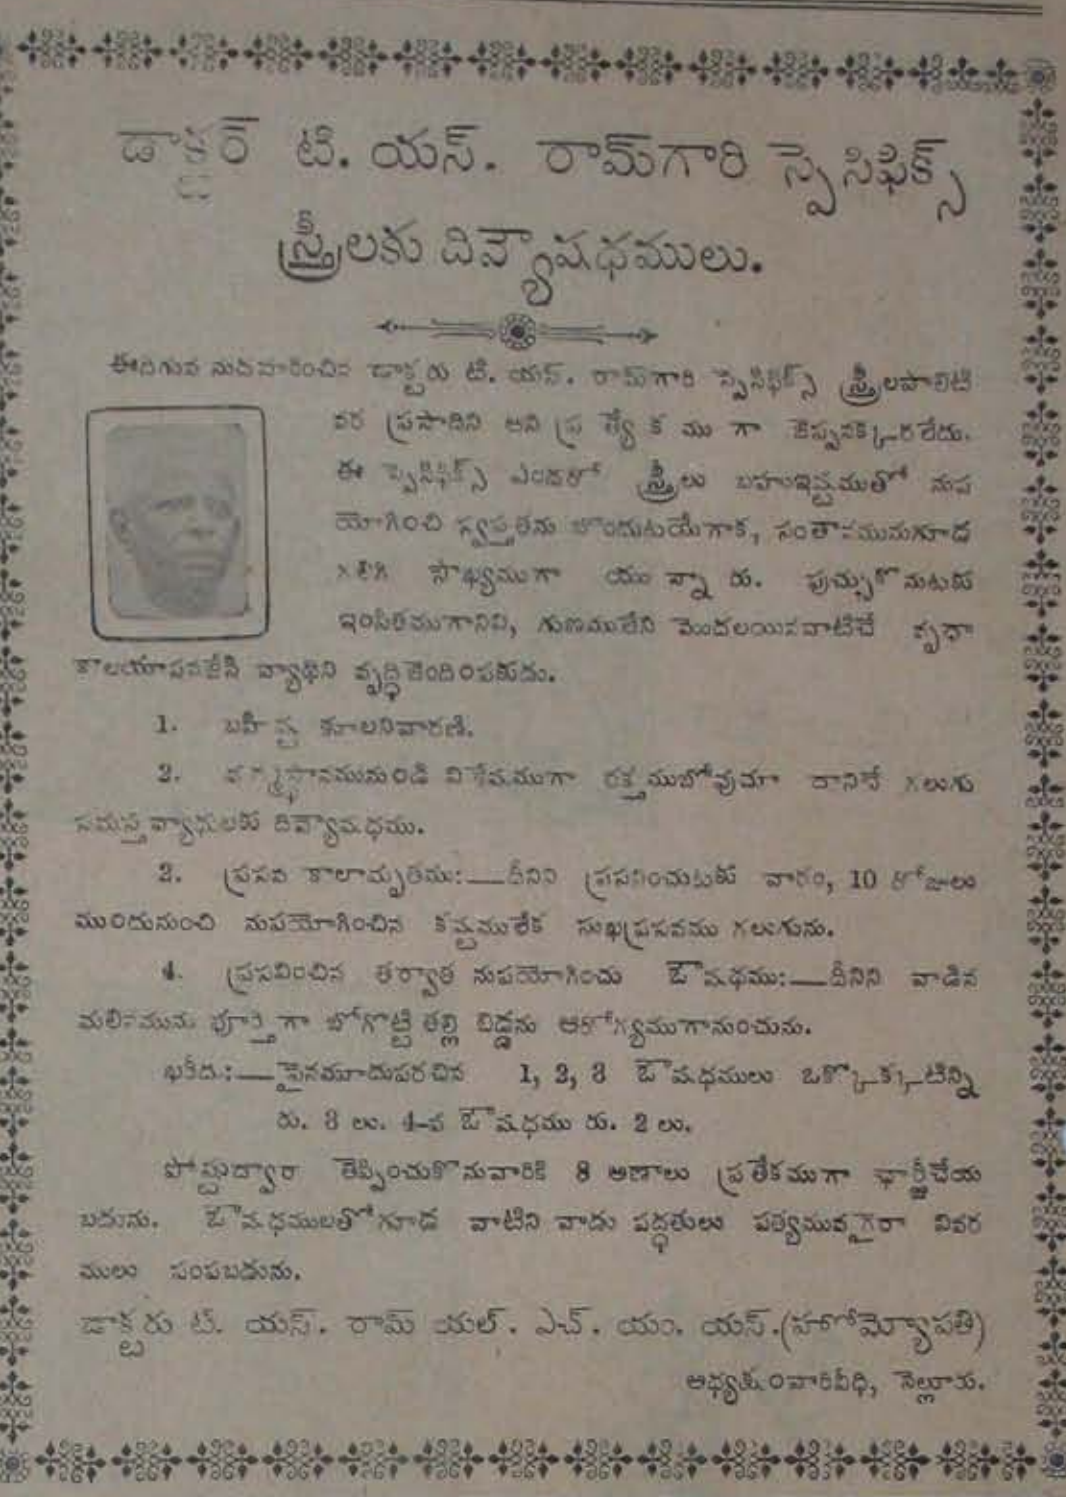 డాక్టర్ టి. యస్. రామ్‌గారి స్పెసిఫిక్స్
స్త్రీలకు దివ్యౌషధములు.
ఈదిగువ నుదహరించిన డాక్టరు టి. యస్. రామ్‌గారి స్పెసిఫిక్స్ స్త్రీలపాలిటి
వర ప్రసాదిని అని ప్ర త్యే క ము గా జెప్పనక్కరలేదు.
ఈ స్పెసిఫిక్స్ ఎందరో స్త్రీలు బహుఇష్టముతో నుప
యోగించి స్వస్తతను బొందుటయేగాక, సంతానమునుగూడ
గలిగి సౌఖ్యముగా యు న్నా రు. పుచ్చుకొనుటకు
ఇంపితముగానివి, గుణములేని మొదలయినవాటిచే వృధా
కాలయాపనజేసి వ్యాధిని వృద్ధిజెందింపకుడు.
1. బహిష్టు శూలనివారణి.
2. విశేషముగా రక్తముబోవుమా దానిచే గలుగు
సమస్త వ్యాధులకు దివ్యౌషధము.
3. ప్రసవ కాలామృతము:—దీనిని ప్రసవించుటకు వారం, 10 రోజులు
ముందునుంచి నుపయోగించిన కష్టములేక సుఖప్రసవము గలుగును.
4. ప్రసవించిన తర్వాత నుపయోగించు ఔషధము:—దీనిని వాడిన
మలినమును పూర్తిగా బోగొట్టి తల్లి బిడ్డను ఆరోగ్యముగానుంచును.
ఖరీదు:—పైనమూదుపరచిన 1, 2, 3 ఔషధములు ఒక్కొక్కటిన్ని
రు. 3 లు. 4-వ ఔషధము రు. 2 లు.
పోష్టుద్వారా తెప్పించుకొనువారికి 8 అణాలు ప్రతేకముగా ఛార్జీచేయ
బడును. ఔషధములతోగూడ వాటిని వాడు పద్ధతులు పత్యమువగైరా వివర
ములు పంపబడును.
డాక్టరు టి. యస్. రామ్ యల్. ఎచ్. యం. యస్. (హోమ్యోపతి)
అధ్యక్షంవారివీధి, నెల్లూరు.